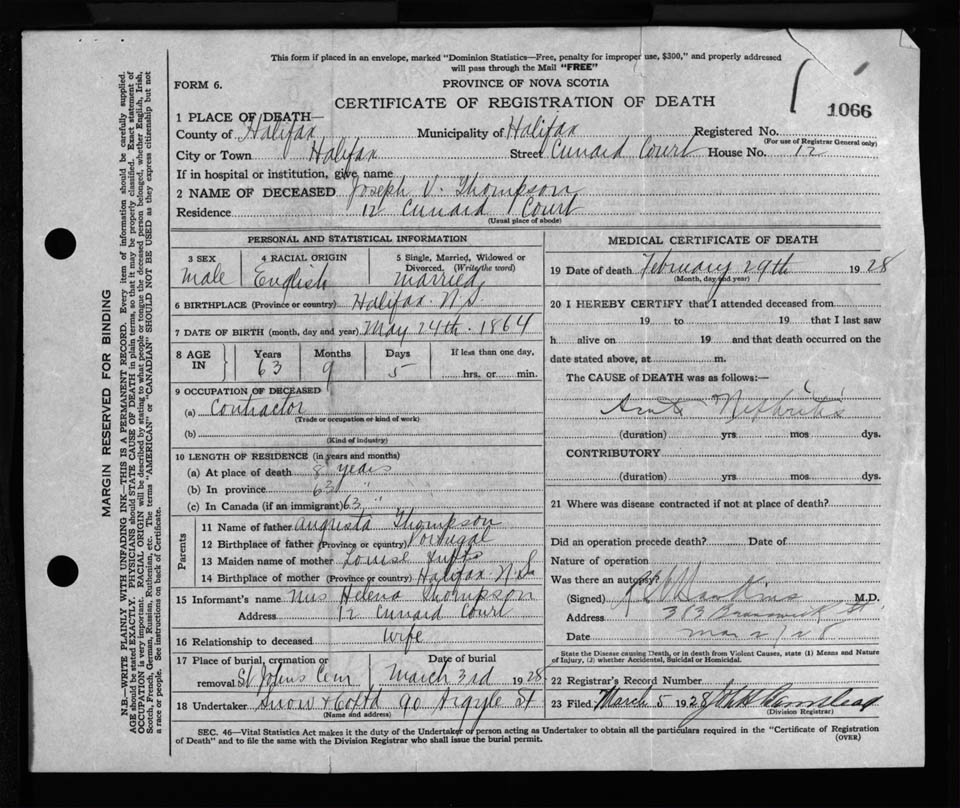 This form if placed in an envelope, marked "Dominion Statistics—Free, penalty for improper use, $300," and properly addressed
will pass through the Mail "FREE"
FORM 6.
PROVINCE OF NOVA SCOTIA
CERTIFICATE OF REGISTRATION OF DEATH
1066
1 PLACE OF DEATH—
County of Halifax Municipality of Halifax Registered No.
(For use of Registrar General only)
City or Town Halifax Street Cunard Court House No. 12
If in hospital or institution, give name
2 NAME OF DECEASED Joseph V. Thompson
Residence 12 Cunard Court
(Usual place of abode)
PERSONAL AND STATISTICAL INFORMATION
3 SEX Male
4 RACIAL ORIGIN English
5 Single, Married, Widowed or Divorced. (Write the word) Married
6 BIRTHPLACE (Province or country) Halifax. N.S.
7 DATE OF BIRTH (month, day and year) May 24th. 1864
8 AGE IN Years 63 Months 9 Days 5 If less than one day, hrs. or min.
9 OCCUPATION OF DECEASED
(a) Contractor
(Trade or occupation or kind of work)
(b)
(Kind of industry)
10 LENGTH OF RESIDENCE (in years and months)
(a) At place of death 8 years
(b) In province 63 "
(c) In Canada (if an immigrant) 63 "
Parents
11 Name of father Augusta Thompson
12 Birthplace of father (Province or country) Portugal
13 Maiden name of mother Louise
14 Birthplace of mother (Province or country) Halifax N.S.
15 Informant's name Mrs Helena Thompson
Address 12 Cunard Court
16 Relationship to deceased wife
17 Place of burial, cremation or removal St Johns Cem Date of burial March 3rd 1928
18 Undertaker Snow & Co Ltd 90 Argyle St
(Name and address)
MEDICAL CERTIFICATE OF DEATH
19 Date of death February 29th 1928
(Month, day and year)
20 I HEREBY CERTIFY that I attended deceased from
19 to 19 that I last saw
h alive on 19 and that death occurred on the
date stated above, at m.
The CAUSE of DEATH was as follows:—
Nephritis
(duration) yrs. mos dys.
CONTRIBUTORY
(duration) yrs. mos dys.
21 Where was disease contracted if not at place of death?
Did an operation precede death? Date of
Nature of operation
Was there an autopsy?
(Signed) Hawkins M.D.
Address 363 Brunswick St
Date Mar 2/28
State the Disease causing Death, or in death from Violent Causes, state (1) Means and Nature
of Injury, (2) whether Accidental, Suicidal or Homicidal.
22 Registrar's Record Number
23 Filed March 5 1928
(Division Registrar)
SEC. 46—Vital Statistics Act makes it the duty of the Undertaker or person acting as Undertaker to obtain all the particulars required in the "Certificate of Registration
of Death" and to file the same with the Division Registrar who shall issue the burial permit.
(OVER)
MARGIN RESERVED FOR BINDING
N.B.—WRITE PLAINLY WITH UNFADING INK—THIS IS A PERMANENT RECORD. Every item of information should be carefully supplied.
AGE should be stated EXACTLY. PHYSICIANS should STATE CAUSE OF DEATH in plain terms, so that it may be properly classified. Exact statement of
OCCUPATION is very important. RACIAL ORIGIN will be described by stating to what people or tongue the deceased person belonged, whether English, Irish,
Scotch, French, German, Russian, Ruthenian, etc. The terms "AMERICAN" or "CANADIAN" SHOULD NOT BE USED as they express citizenship but not
a race or people. See instructions on back of Certificate.